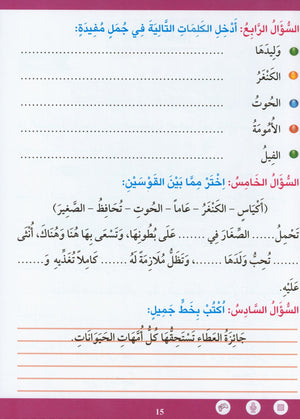 السُّؤَالُ الرَّابِعُ: أَدْخِلِ الكَلِمَاتِ التَّالِيَةَ فِي جُمَلٍ مُفِيدَةٍ:
وَلِيدَهَا ........................................
الكَنْغَرُ ........................................
الحُوتُ ........................................
الأُمُومَةُ ........................................
الفِيلُ ........................................
السُّؤَالُ الخَامِسُ: اخْتَرْ مِمَّا بَيْنَ القَوْسَيْنِ:
(أَكْيَاسٍ – الكَنْغَرُ – عَاماً – الحوتِ – تُحَافِظُ – الصَّغِيرَ)
تَحْمِلُ ...... الصِّغَارَ فِي ...... عَلَى بُطُونِهَا، وَتَسْعَى بِهَا هُنَا وَهُنَاكَ، أُنْثَى
...... تُحِبُّ وَلَدَهَا ......، وَتَظَلُّ مُلَازِمَةً لَهُ ...... كَامِلاً تُغَذِّيهِ وَ......
عَلَيْهِ.
السُّؤَالُ السَّادِسُ: اُكْتُبْ بِخَطٍّ جَمِيلٍ:
جَائِزَةُ العَطَاءِ تَسْتَحِقُّهَا كُلُّ أُمَّهَاتِ الحَيَوَانَاتِ.
15